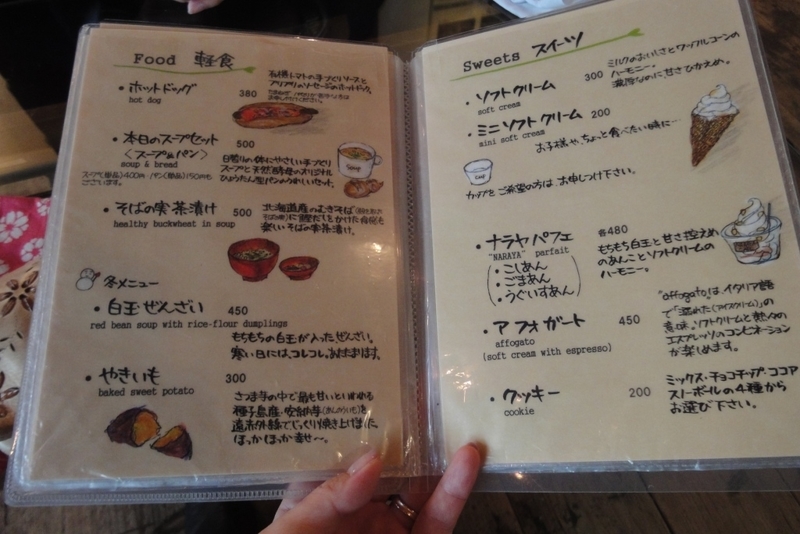 Food 軽食
・ホットドッグ 380
hot dog
有機トマトの手づくりソースと
プリプリのソーセージのホットドック。
・本日のスープセット 500
〈スープ&パン〉
soup & bread
スープ(単品)400円/パン(単品)150円も
ございます。
日替りの体にやさしい手づくり
スープと天然酵母のオリジナル
ひょうたん型パンのうれしいセット。
Soup
・そばの実茶漬け 500
healthy buckwheat in soup
北海道産のむきそば
に鰹だしをかけた
楽しいそばの実茶漬け。
冬メニュー
・白玉ぜんざい 450
red bean soup with rice-flour dumplings
もちもちの白玉が入ったぜんざい。
寒い日には、コレコレ。あたたまります。
・やきいも 300
baked sweet potato
さつま芋の中で最も甘いといわれる
種子島産・安納芋(あんのういも)を
遠赤外線でじっくり焼き上げました。
ほっかほっか幸せ〜。
Sweets スイーツ
・ソフトクリーム 300
soft cream
ミルクのおいしさとワッフルコーンの
ハーモニー。
濃厚なのに甘さひかえめ。
・ミニソフトクリーム 200
mini soft cream
お子様や、ちょっと食べたい時に…
cup
カップをご希望の方は、お申しつけ下さい。
・ナラヤパフェ 各480
"NARAYA" parfait
・こしあん
・ごまあん
・うぐいすあん
もちもち白玉と甘さ控えめ
のあんことソフトクリームの
ハーモニー。
・アフォガート 450
affogato
(soft cream with espresso)
"affogato"は、イタリア語
で「溺れた(アイスクリーム)」の
意味。ソフトクリームと熱々の
エスプレッソのコンビネーション
が楽しめます。
・クッキー 200
cookie
ミックス・チョコチップ・ココア
スノーボールの4種から
お選び下さい。